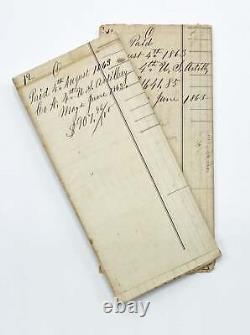 12 A
Paid 4th August 1863
Co A, 4th U.S. Artillery
May & June 1863
$ 707.
A
Paid
ust 4th 1863
4th U, S, Artilly
446 85
June 1863